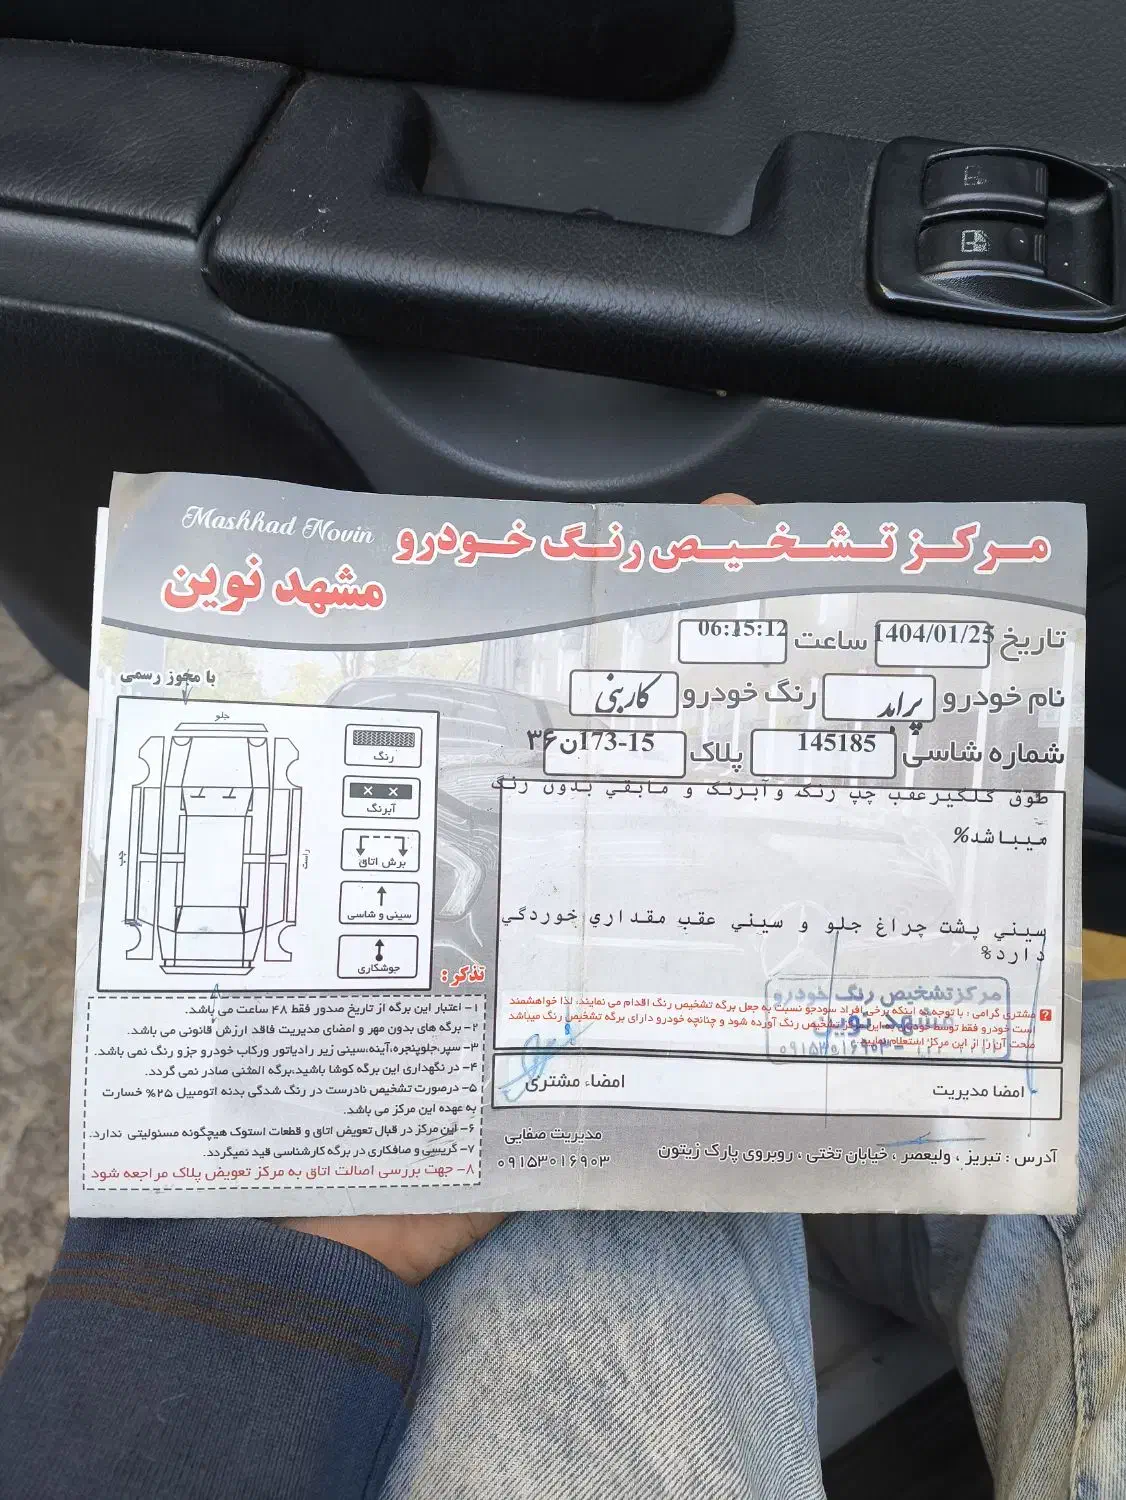 Mashhad Novin
مرکز تشخیص رنگ خودرو
مشهد نوین
تاریخ 1404/01/25 ساعت 06:15:12
نام خودرو پراید رنگ خودرو کاربنی
شماره شاسی 145185 پلاک 173-15ن۳۶
طوق گلگیرعقب چپ رنگ وآبرنگ و مابقي بدون رنگ
میباشد%
سیني پشت چراغ جلو و سیني عقب مقداري خوردگي
دارد%
مشتری گرامی : با توجه به اینکه برخی افراد سودجو نسبت به جعل برگه تشخیص رنگ اقدام می نمایند، لذا خواهشمند
است خودرو فقط توسط خودتان به این مرکز تشخیص رنگ آورده شود و چنانچه خودرو دارای برگه تشخیص رنگ میباشد
صحت آن را از این مرکز استعلام نمایید.
مرکز تشخیص رنگ خودرو
مشهد نوین
۰۹۱۵۳۰۱۶۹۰۳
امضا مدیریت
امضاء مشتری
با مجوز رسمی
جلو
چپ
راست
رنگ
آبرنگ
برش اتاق
سینی و شاسی
جوشکاری
تذکر:
۱- اعتبار این برگه از تاریخ صدور فقط ۴۸ ساعت می باشد.
۲- برگه های بدون مهر و امضای مدیریت فاقد ارزش قانونی می باشد.
۳- سپر،جلوپنجره،آینه،سینی زیر رادیاتور ورکاب خودرو جزو رنگ نمی باشد.
۴- در نگهداری این برگه کوشا باشید،برگه المثنی صادر نمی گردد.
۵- درصورت تشخیص نادرست در رنگ شدگی بدنه اتومبیل ۲۵% خسارت
به عهده این مرکز می باشد.
۶- این مرکز در قبال تعویض اتاق و قطعات استوک هیچگونه مسئولیتی ندارد.
۷- گریسی و صافکاری در برگه کارشناسی قید نمیگردد.
۸- جهت بررسی اصالت اتاق به مرکز تعویض پلاک مراجعه شود
مدیریت صفایی
۰۹۱۵۳۰۱۶۹۰۳
آدرس : تبریز ، ولیعصر ، خیابان تختی ، روبروی پارک زیتون